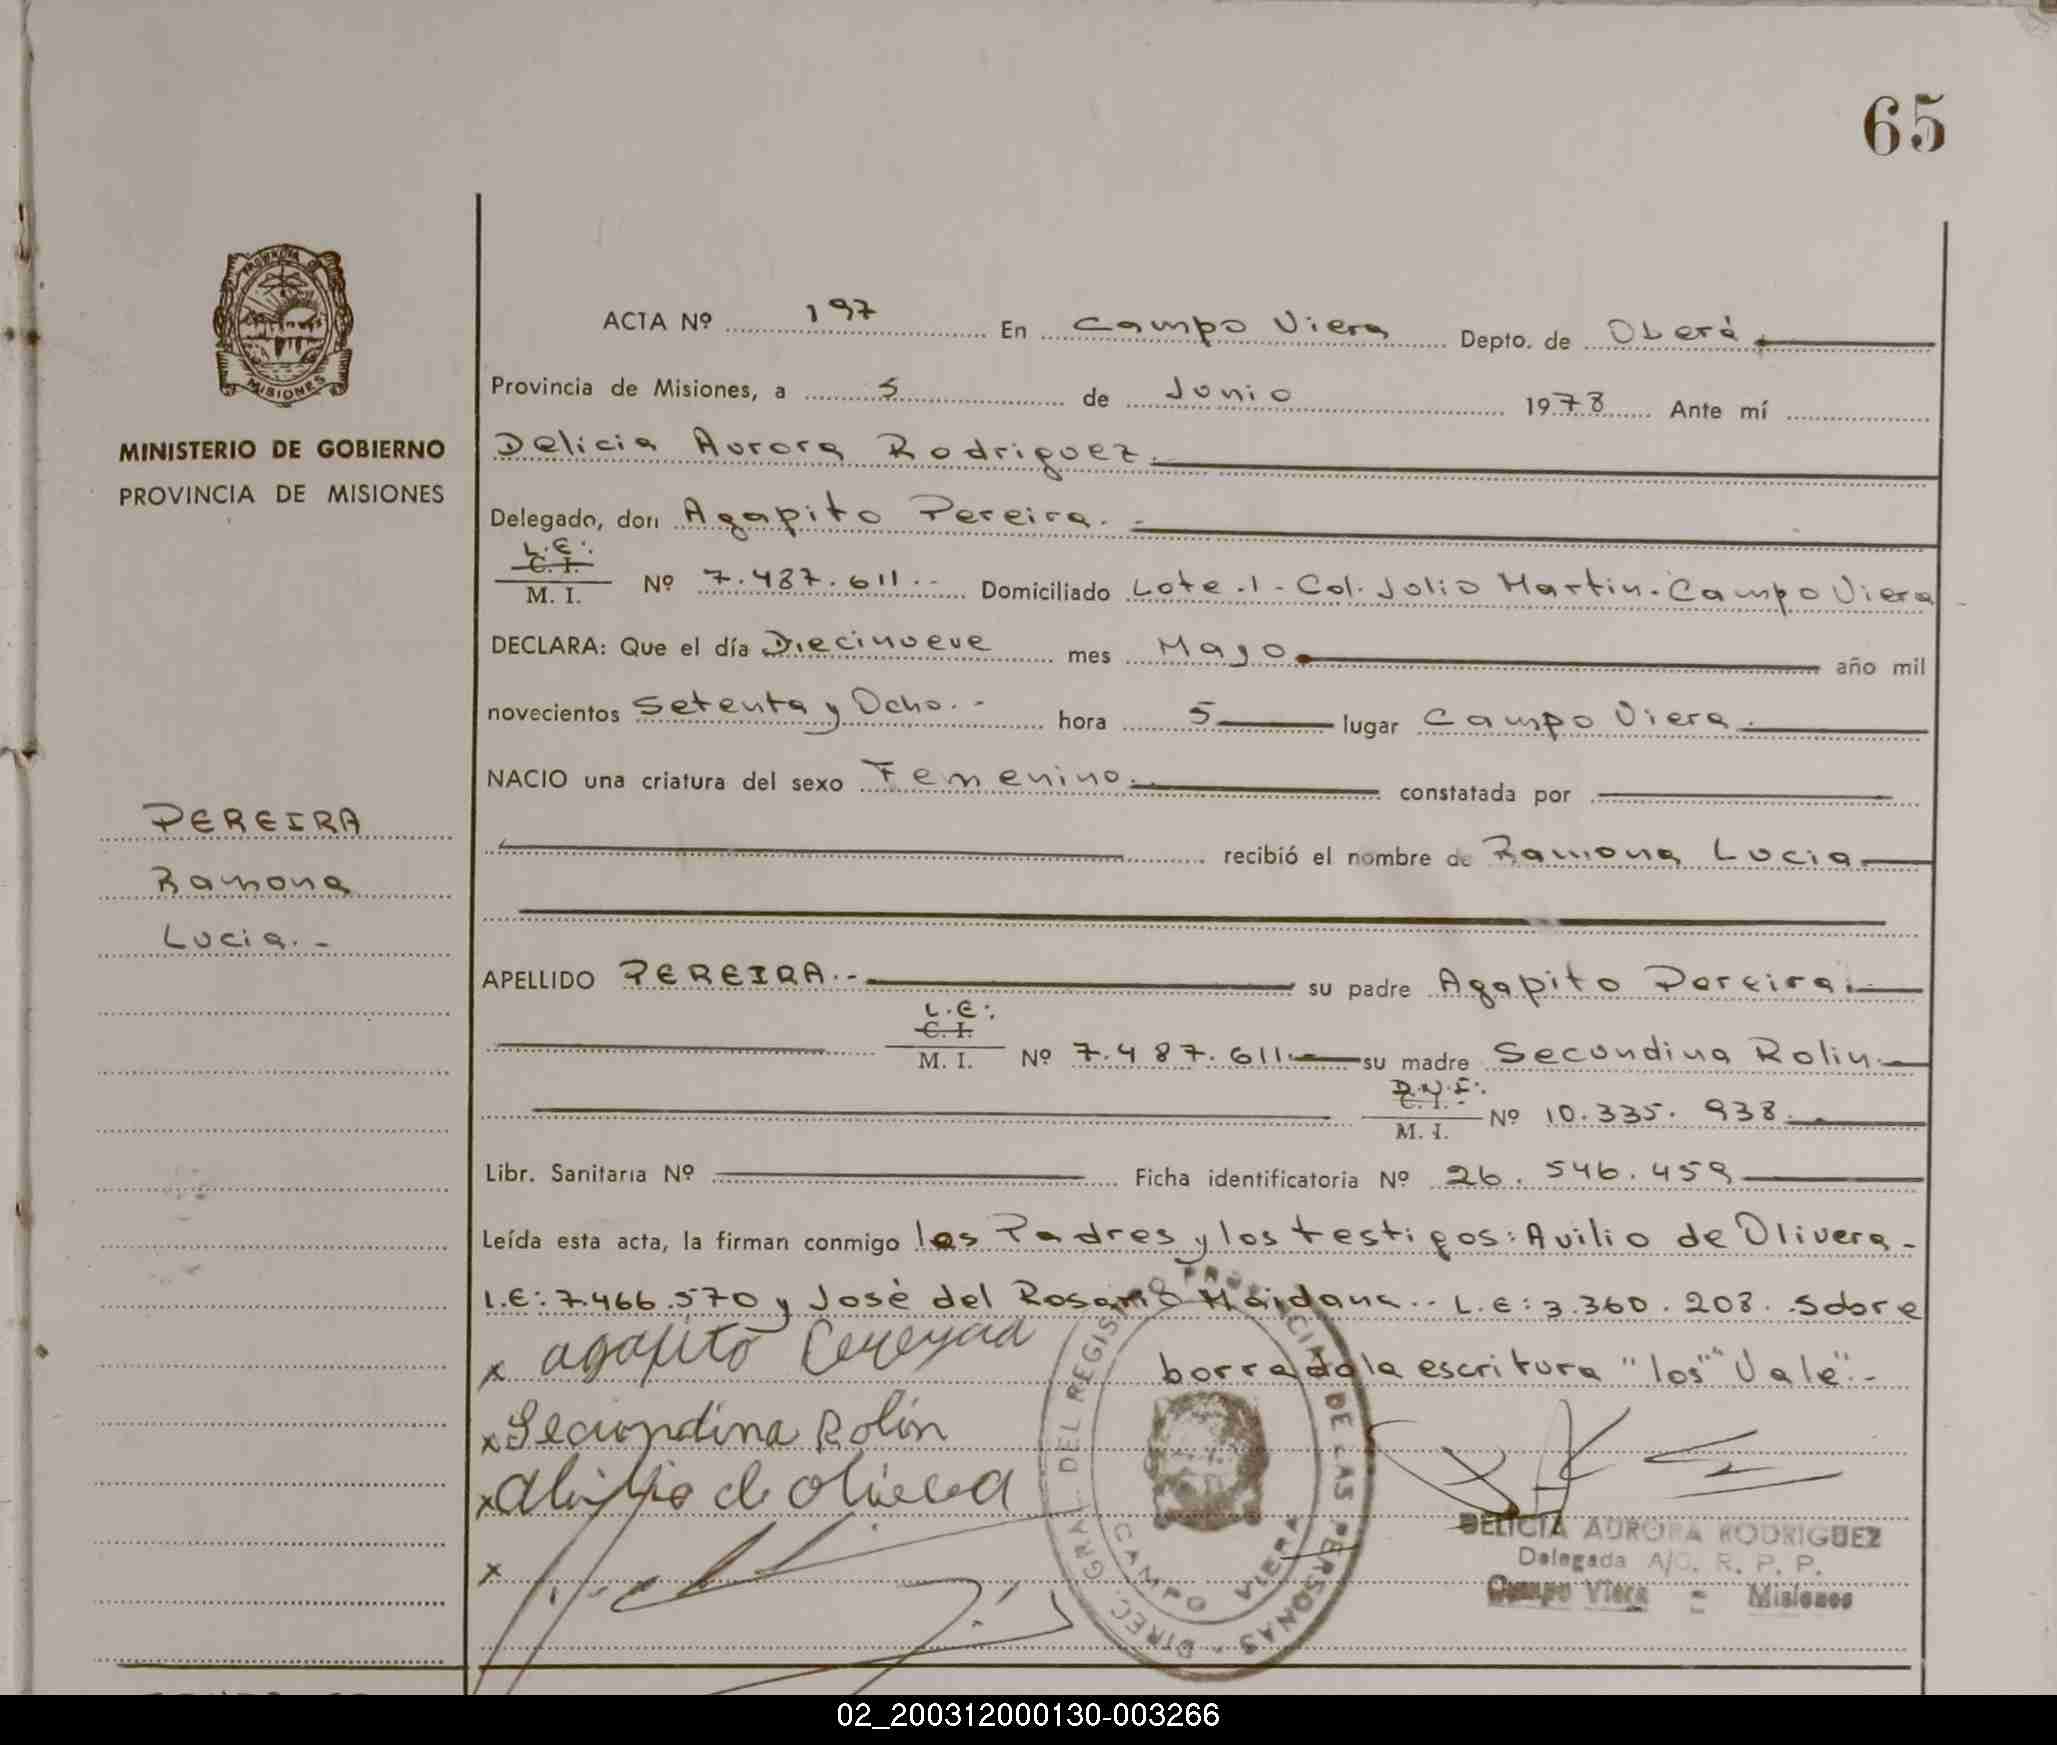 65
PROVINCIA DE
MISIONES
MINISTERIO DE GOBIERNO
PROVINCIA DE MISIONES
PEREIRA
Ramona
Lucia.-
ACTA Nº 197 En Campo Viera Depto. de Oberá
Provincia de Misiones, a 5 de Junio 1978 Ante mí
Delicia Aurora Rodriguez.
Delegado, don Agapito Pereira.-
L.E:.
C. I.
M. I. Nº 7.487.611.- Domiciliado Lote.1-Col. Julio Martin.Campo Viera
DECLARA: Que el día Diecinueve mes Mayo año mil
novecientos Setenta y Ocho.- hora 5 lugar Campo Viera.
NACIO una criatura del sexo Femenino. constatada por
recibió el nombre de Ramona Lucia
APELLIDO PEREIRA.- su padre Agapito Pereira.
L.E:.
C. I.
M. I. Nº 7.487.611.- su madre Secundina Rolin.
D.N.I:.
C. I.
M. I. Nº 10.335.938.
Libr. Sanitaria Nº Ficha identificatoria Nº 26.546.459
Leída esta acta, la firman conmigo los Padres y los testigos: Avilio de Olivera-
L.E: 7.466.570 y José del Rosario Maidana.- L.E: 3.360.208. Sobre
x agapito Pereyra borrado la escritura "los" "Vale".-
x Secundina Rolin
x de olivera
x
DIREC. GRAL. DEL REGISTRO PROVINCIAL DE LAS PERSONAS -
CAMPO VIERA
DELICIA AURORA RODRIGUEZ
Delegada A/C. R. P. P.
Campo Viera - Misiones
02_200312000130-003266